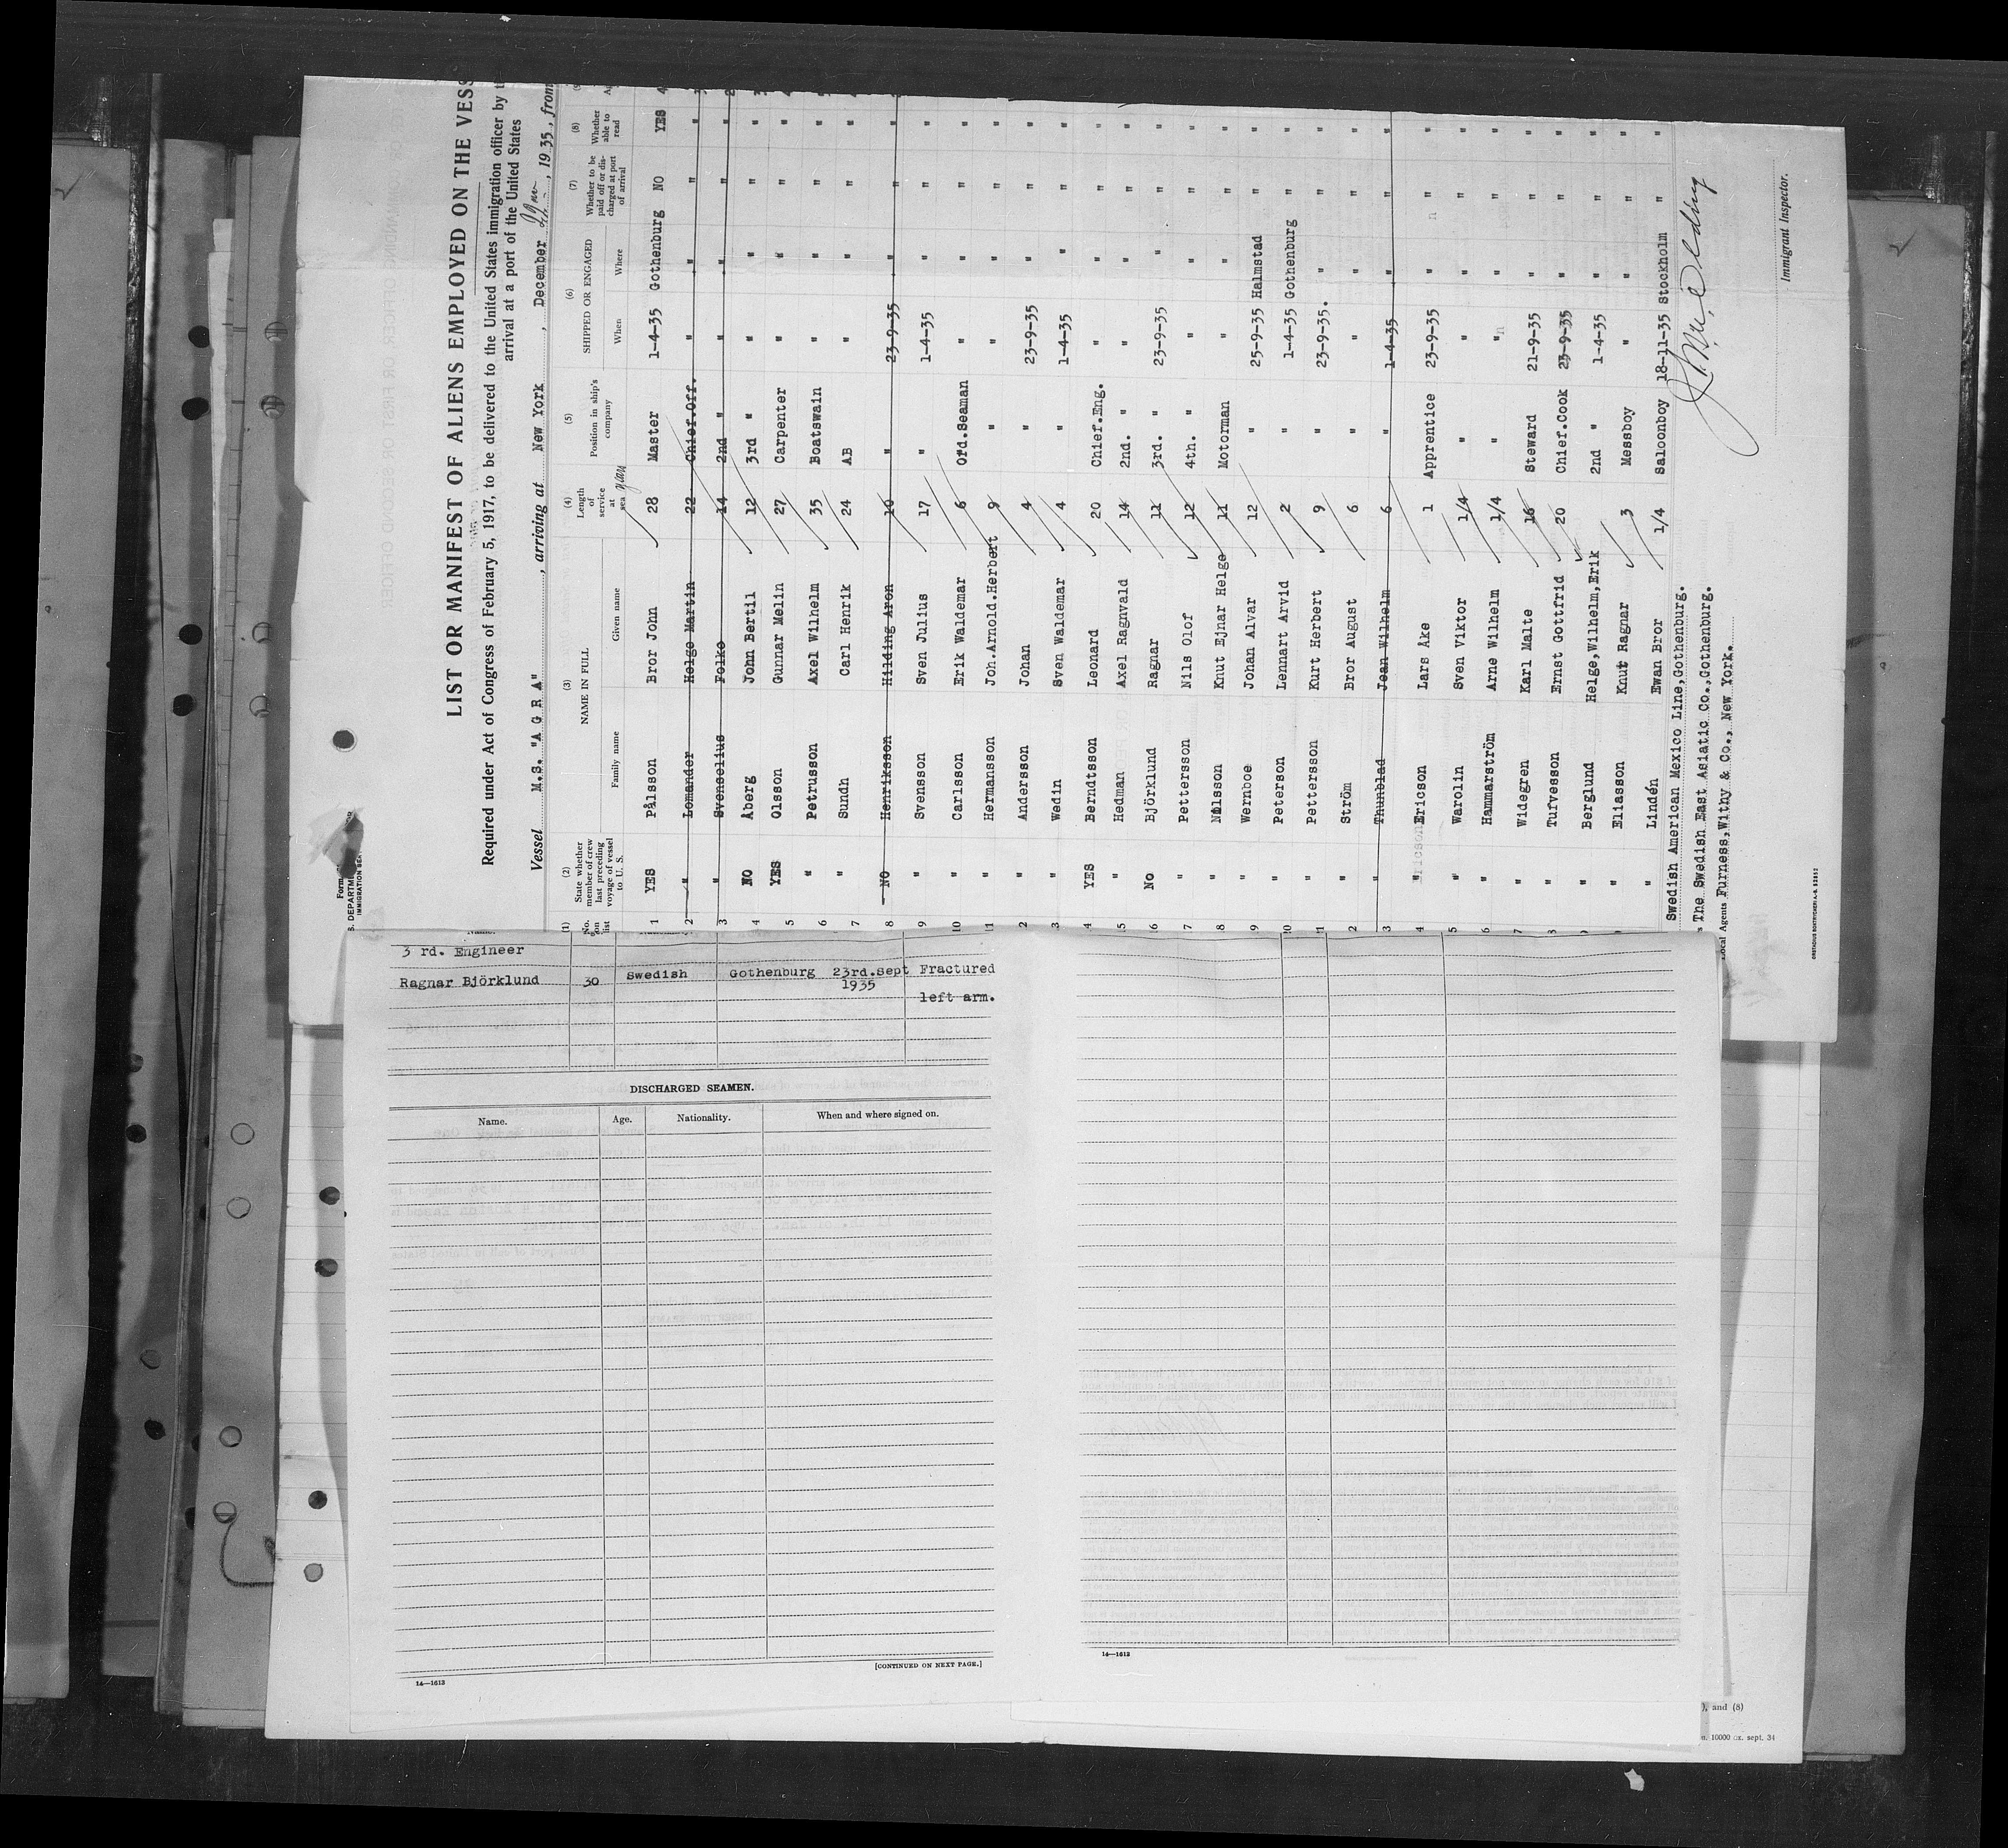 LIST OR MANIFEST OF ALIENS EMPLOYED ON THE VESS
Required under Act of Congress of February 5, 1917, to be delivered to the United States immigration officer by t
arrival at a port of the United States
Vessel M.S. "A G R A" , arriving at New York , December , 1935, from
Form
S. DEPARTM
IMMIGRATION SER
(1) No. on list
(2) State whether member of crew last preceding voyage of vessel to U. S.
(3) NAME IN FULL Family name Given name
(4) Length of service at sea
(5) Position in ship's company
(6) SHIPPED OR ENGAGED When Where
(7) Whether to be paid off or discharged at port of arrival
(8) Whether able to read
1 YES Pålsson Bror John 28 Master 1-4-35 Gothenburg NO YES
2 " Lomander Helge Martin 22 Chief.Off. " " " "
3 " Svenselius Folke 14 2nd " " " " "
4 NO Åberg John Bertil 12 3rd " " " " "
5 YES Olsson Gunnar Melin 27 Carpenter " " " "
6 " Petrusson Axel Wilhelm 35 Boatswain " " " "
7 " Sundh Carl Henrik 24 AB " " " "
8 NO Henriksson Hilding Aron 10 " 23-9-35 " " "
9 " Svensson Sven Julius 17 " 1-4-35 " " "
10 " Carlsson Erik Waldemar 6 Ord.Seaman " " " "
11 " Hermansson Joh.Arnold.Herbert 9 " " " " "
2 " Andersson Johan 4 " 23-9-35 " " "
3 " Wedin Sven Waldemar 4 " 1-4-35 " " "
4 YES Berndtsson Leonard 20 Chief.Eng. " " " "
5 " Hedman Axel Ragnvald 14 2nd. " " " " "
6 No Björklund Ragnar 11 3rd. " 23-9-35 " " "
7 " Pettersson Nils Olof 12 4th. " " " " "
8 " Nilsson Knut Ejnar Helge 11 Motorman " " " "
9 " Wernboe Johan Alvar 12 " 25-9-35 Halmstad " "
0 " Peterson Lennart Arvid 2 " 1-4-35 Gothenburg " "
1 " Pettersson Kurt Herbert 9 " 23-9-35. " " "
2 " Ström Bror August 6 " " " " "
3 " Thunblad Jean Wilhelm 6 " 1-4-35 " " "
4 " Ericson Lars Åke 1 Apprentice 23-9-35 " " "
5 " Warolin Sven Viktor 1/4 " " " " "
6 " Hammarström Arne Wilhelm 1/4 " " " " "
7 " Widegren Karl Malte 16 Steward 21-9-35 " " "
8 " Tufvesson Ernst Gottfrid 20 Chief.Cook 23-9-35 " " "
9 " Berglund Helge,Wilhelm,Erik 2nd " 1-4-35 " " "
" Eliasson Knut Ragnar 3 Messboy " " " "
" Lindén Ewan Bror 1/4 Saloonboy 18-11-35 Stockholm " "
Swedish American Mexico Line,Gothenburg.
The Swedish East Asiatic Co.,Gothenburg.
Local Agents Furness,Withy & Co., New York.
Immigrant Inspector.
3 rd. Engineer
Ragnar Björklund 30 Swedish Gothenburg 23rd.Sept 1935 Fractured
left arm.
DISCHARGED SEAMEN.
Name. Age. Nationality. When and where signed on.
[CONTINUED ON NEXT PAGE.]
14—1613
14—1613
), and (8)
10000 ex. sept. 34